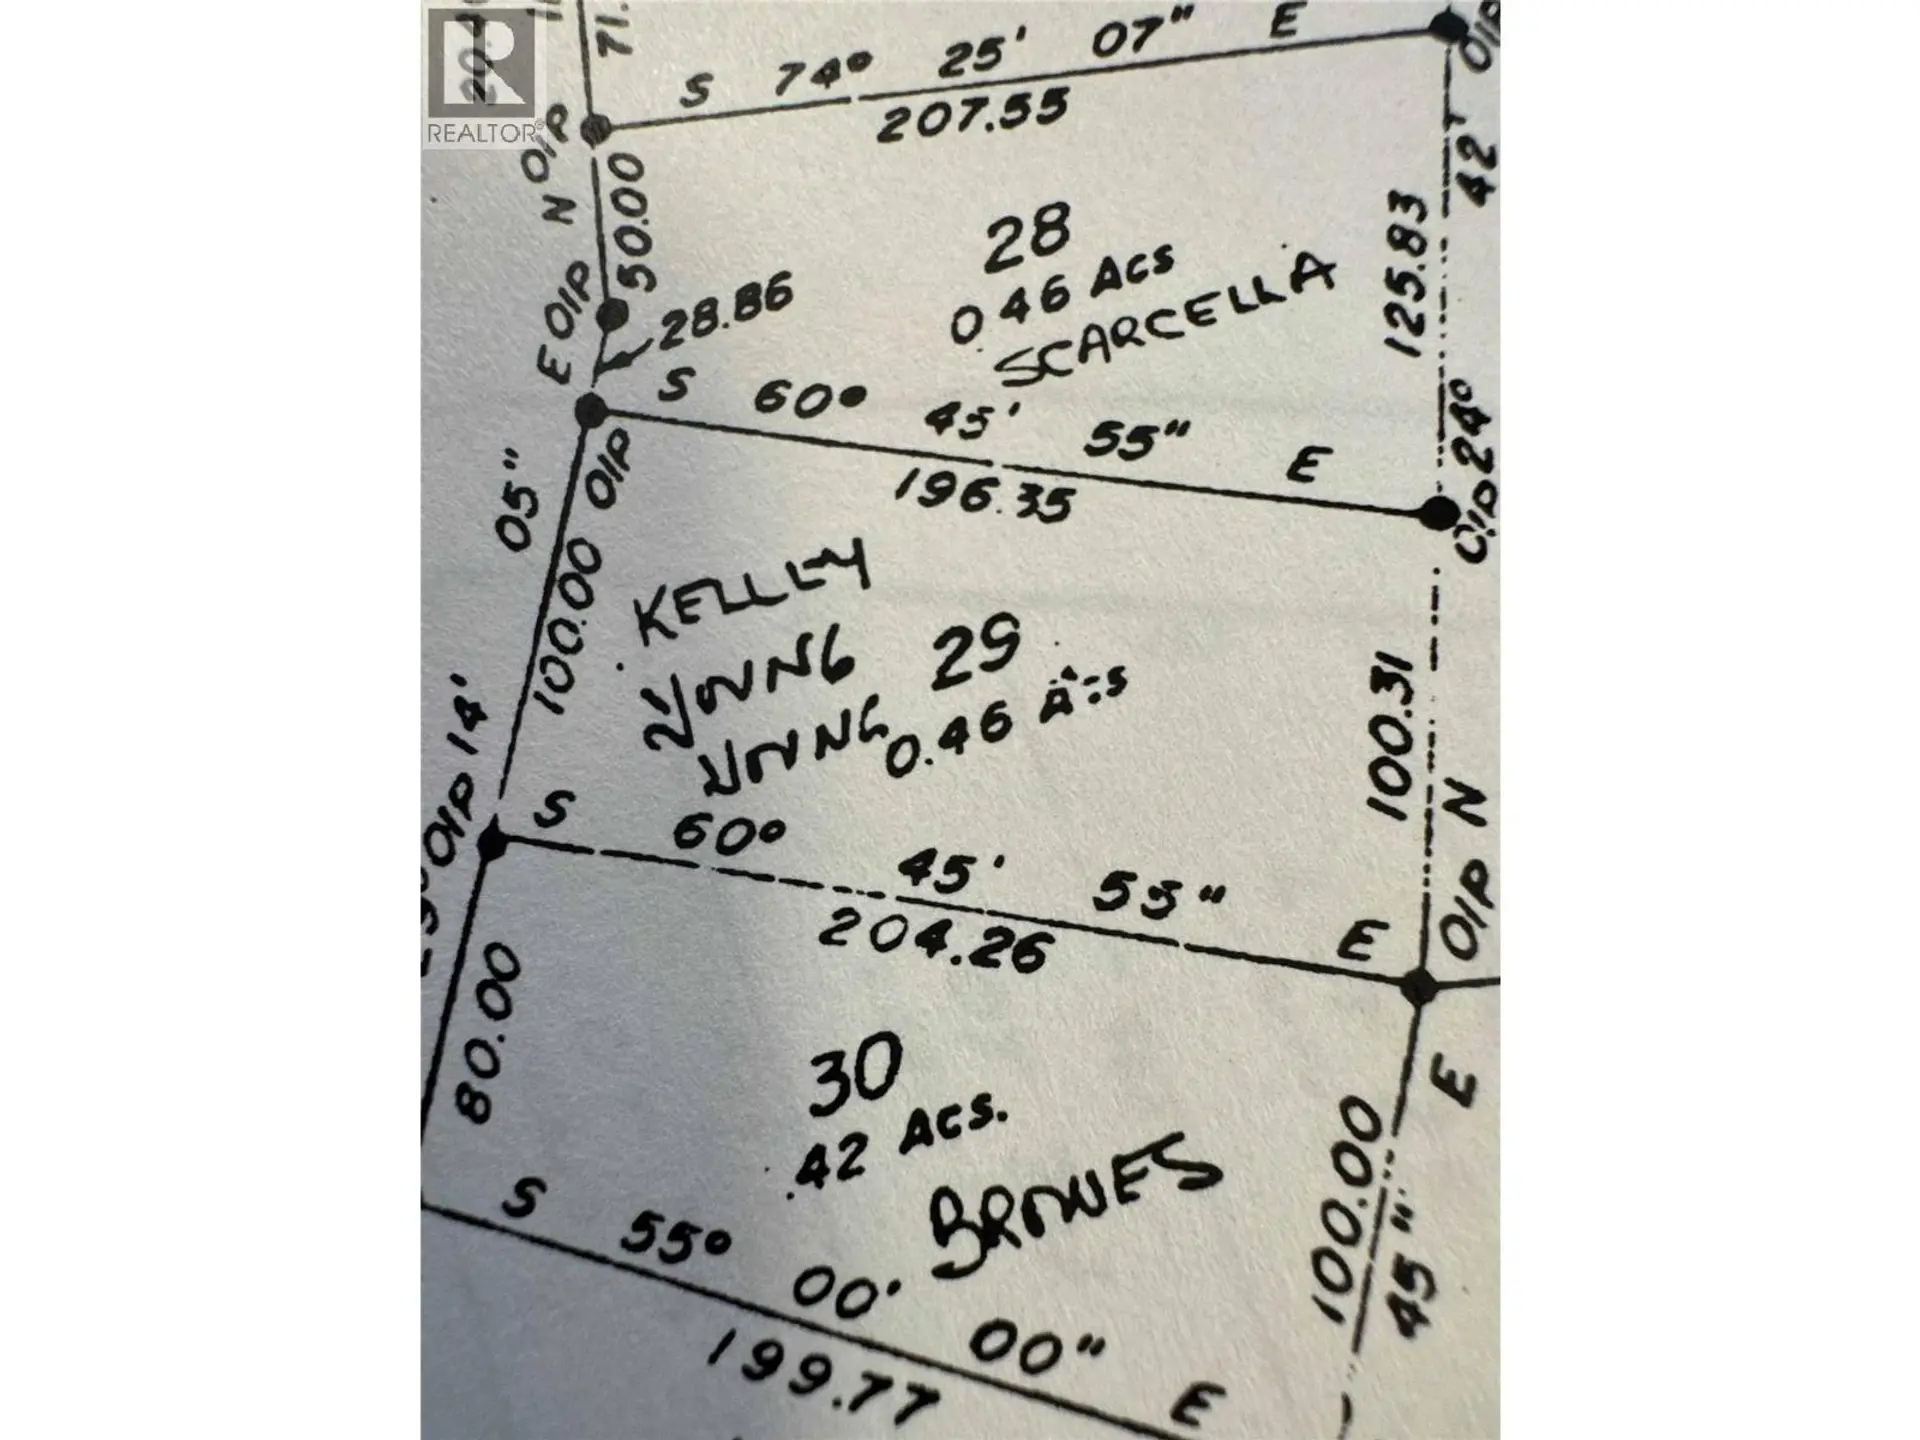 REALTOR®
S 74° 25' 07" E
207.55
OIP
50.00
N
28
0.46 Acs
SCARCELLA
125.83
42'
OIP
E
28.86
S 60° 45' 55" E
196.35
OIP
24°
OIP
05"
100.00
KELLEY
YOUNG
YOUNG
29
0.46 Acs
100.31
14'
OIP
N
OIP
S 60° 45' 55" E
204.26
80.00
30
.42 Acs.
BROWES
E
100.00
45"
S 55° 00' 00" E
199.77